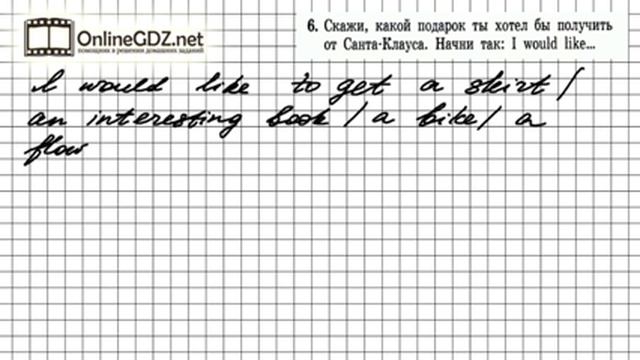 OnlineGDZ.net
помощник в решении домашних заданий
6. Скажи, какой подарок ты хотел бы получить
от Санта-Клауса. Начни так: I would like...
I would like to get a skirt /
an interesting book / a bike / a
flow